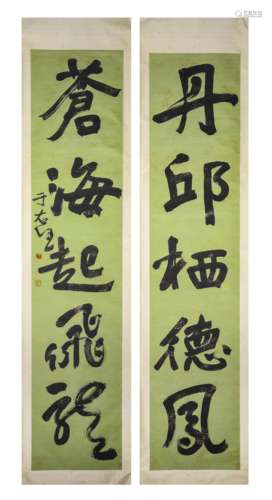 丹邱栖德鳳
蒼海起飛龍
于右任